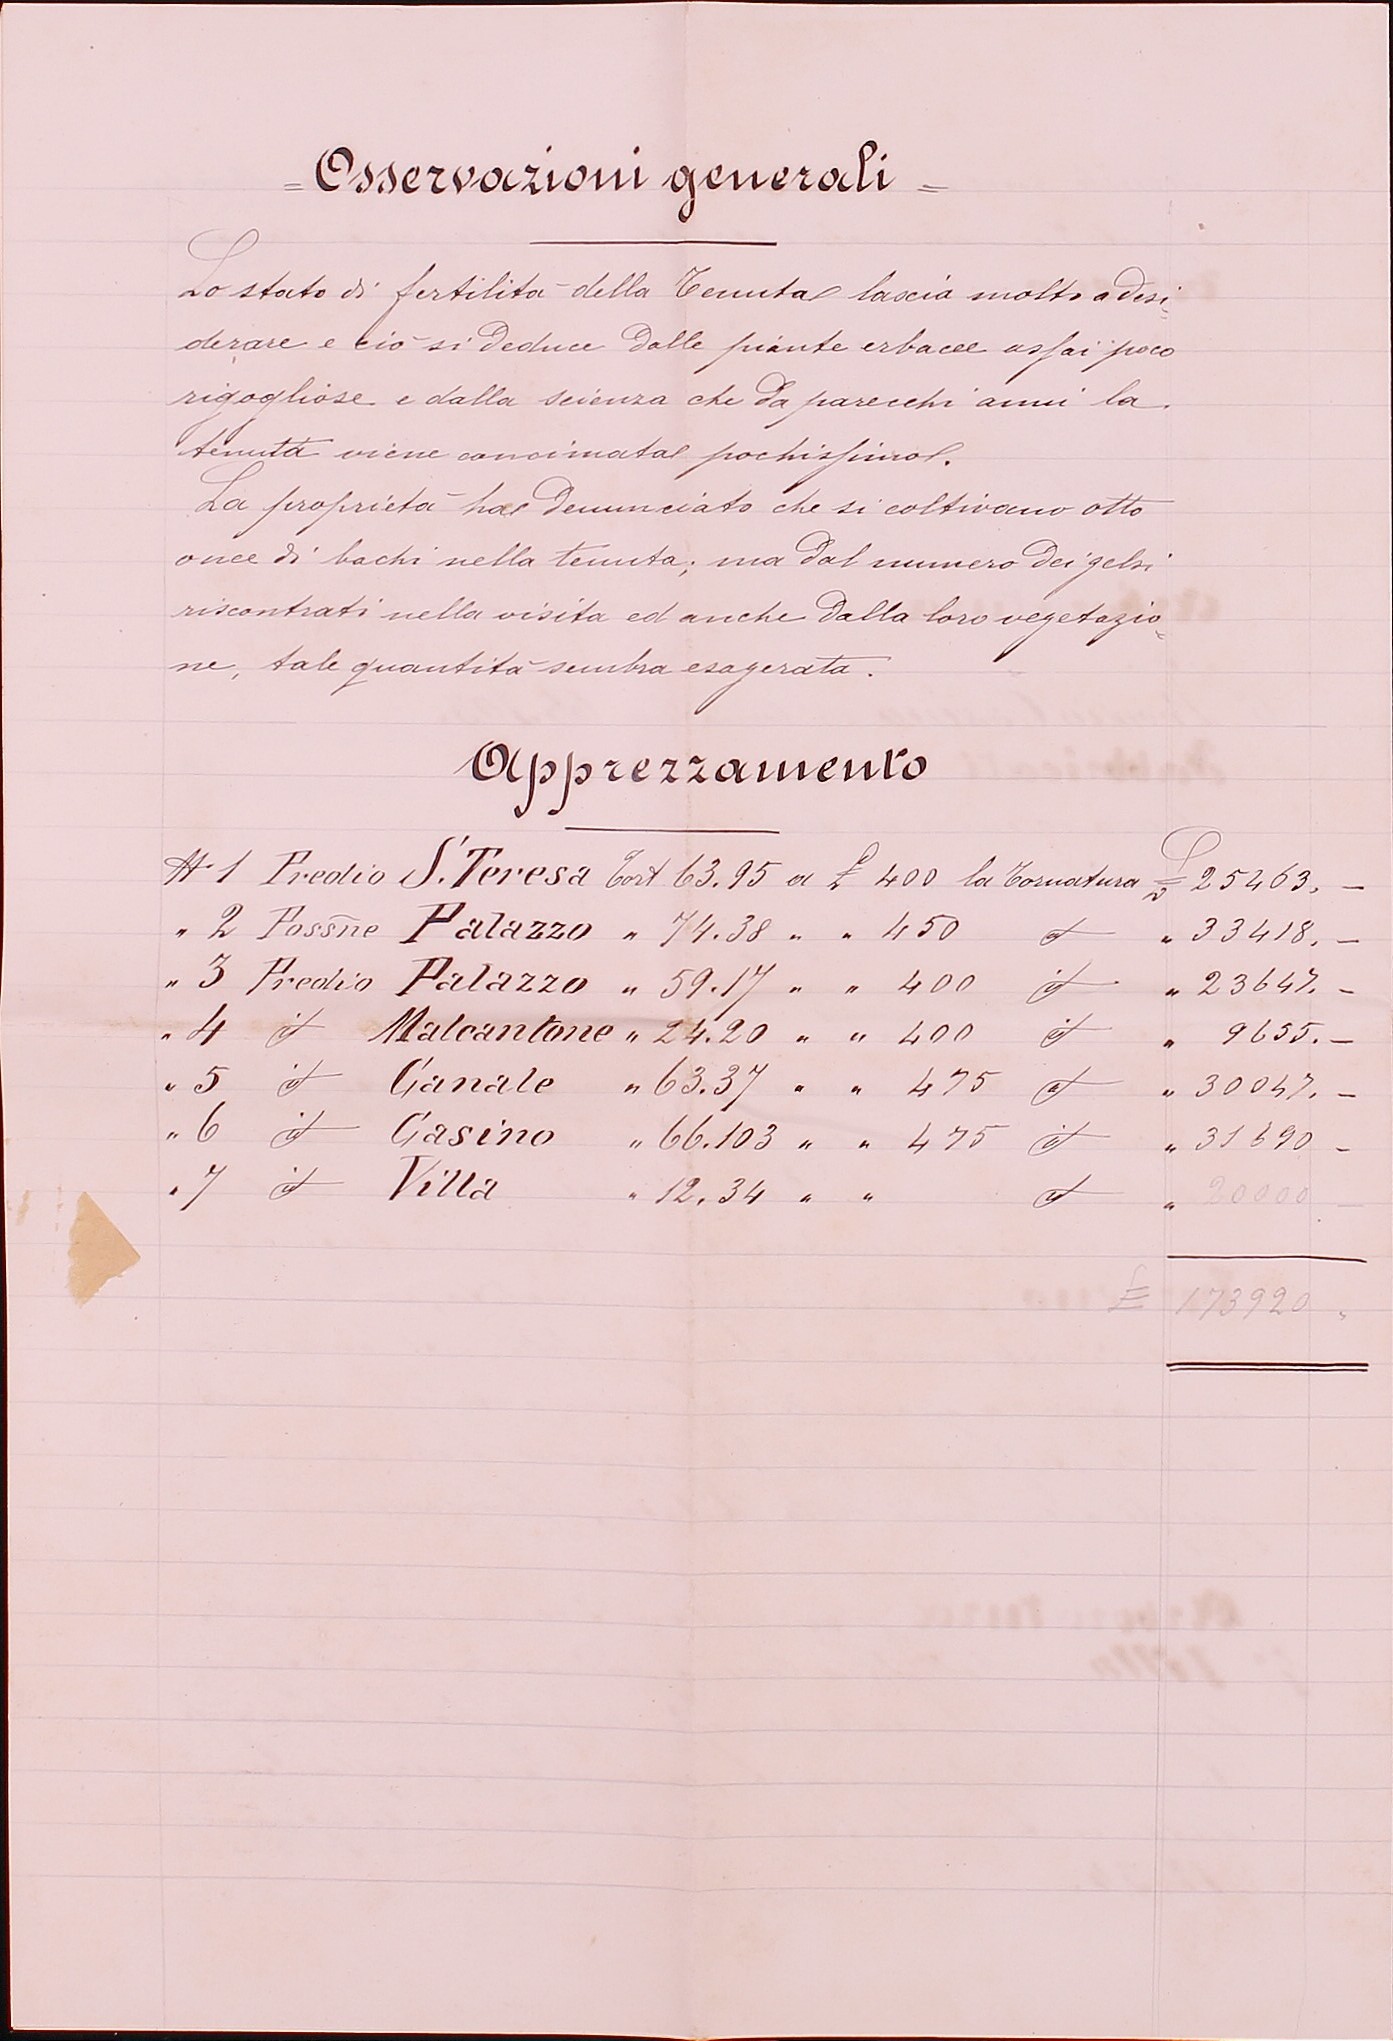 = Osservazioni generali =
Lo stato di fertilità della Tenuta lascia molto a desi=
derare e ciò si deduce dalle piante erbacee assai poco
rigogliose e dalla scienza che da parecchi anni la
tenuta viene concimata pochissimo.
La proprietà ha denunciato che si coltivano otto
once di bachi nella tenuta; ma dal numero dei gelsi
riscontrati nella visita ed anche dalla loro vegetazio=
ne, tale quantità sembra esagerata.
Apprezzamento
N. 1 Predio S. Teresa Tort 63.95 a £ 400 la Tornatura £ 25463. —
" 2 Possñe Palazzo " 74.38 " " 450 id " 33418. —
" 3 Predio Palazzo " 59.17 " " 400 id " 23647. —
" 4 id Malcantone " 24.20 " " 400 id " 9655. —
" 5 id Canale " 63.37 " " 475 id " 30047. —
" 6 id Casino " 66.103 " " 475 id " 31690 —
" 7 id Villa " 12.34 " " id " 20000 —
£ 173920 "